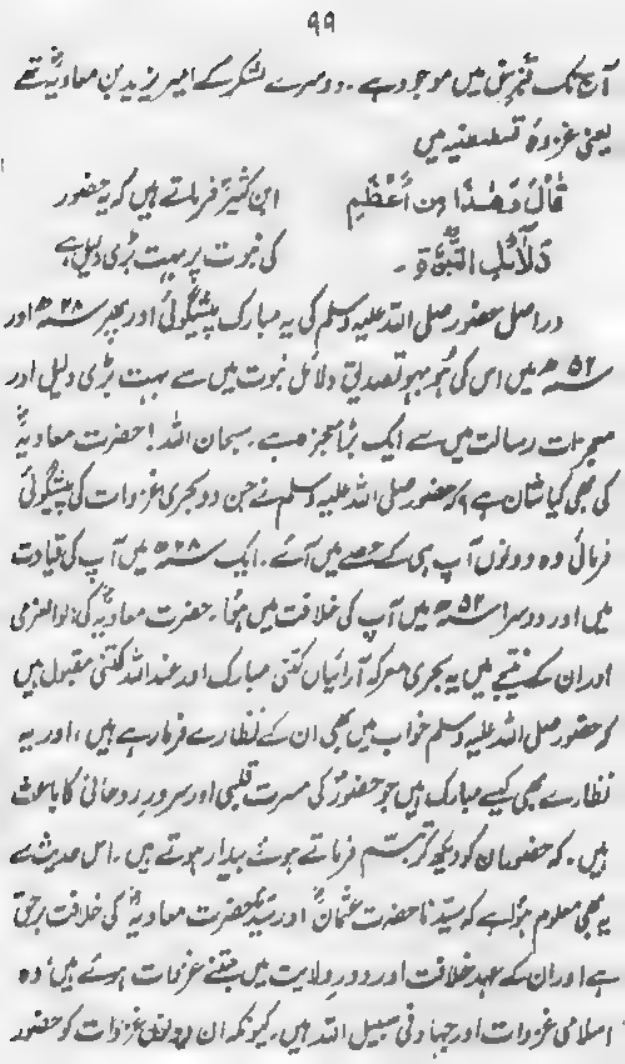 ۹۹
آج تک قبرص میں موجود ہے۔ دوسرے لشکر کے امیر یزید بن معاویہؓ تھے
یعنی غزوۂ قسطنطنیہ میں
قَالَ وَهٰذَا مِن اَعْظَمِ ابن کثیرؒ فرماتے ہیں کہ یہ حضور
دَلَآئِلِ النُّبُوَّةِ۔ کی نبوت پر بہت بڑی دلیل ہے
دراصل حضور صلی اللہ علیہ وسلم کی یہ مبارک پیشگوئی اور پھر ۲۸ھ اور
۵۲ھ میں اس کی ہُو بہو تصدیق دلائل نبوت میں سے بہت بڑی دلیل اور
معجزات رسالت میں سے ایک بڑا معجزہ ہے۔ سبحان اللہ! حضرت معاویہؓ
کی بھی کیا شان ہے کہ حضور صلی اللہ علیہ وسلم نے جن دو بحری غزوات کی پیشگوئی
فرمائی وہ دونوں آپ ہی کے حصے میں آئے۔ ایک ۲۸ھ میں آپ کی قیادت
میں اور دوسرا ۵۲ھ میں آپ کی خلافت میں ہُوا۔ حضرت معاویہؓ کی اولوالعزمی
اور ان کے نتیجے میں یہ بحری معرکہ آرائیاں کتنی مبارک اور عند اللہ کتنی مقبول ہیں
کہ حضور صلی اللہ علیہ وسلم خواب میں بھی ان کے نظارے فرما رہے ہیں، اور یہ
نظارے بھی کیسے مبارک ہیں جو حضورؐ کی مسرت قلبی اور سرور روحانی کا باعث
ہیں۔ کہ حضور ان کو دیکھ کر تبسم فرماتے ہوئے بیدار ہوتے ہیں۔ اس حدیث سے
یہ بھی معلوم ہوا ہے کہ سیّدنا حضرت عثمانؓ اور سیّدنا حضرت معاویہؓ کی خلافت برحق
ہے اور ان کے عہد خلافت اور دورِ ولایت میں جتنے غزوات ہوئے ہیں، وہ
اسلامی غزوات اور جہاد فی سبیل اللہ ہیں۔ کیونکہ ان دونوں غزوات کو حضور